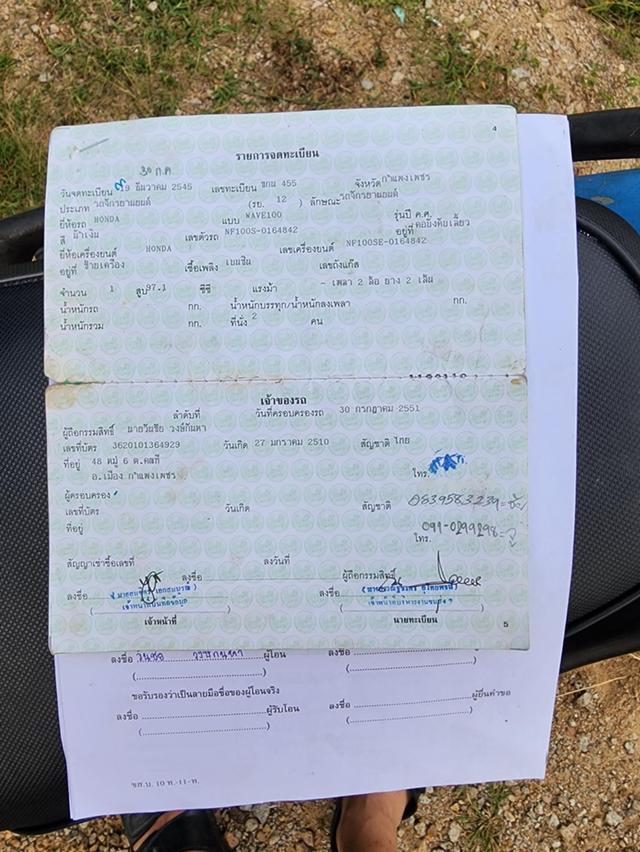 4
รายการจดทะเบียน
30 ก.ค
วันจดทะเบียน 9 ธันวาคม 2545 เลขทะเบียน ขกม 455 จังหวัด กำแพงเพชร
ประเภท รถจักรยานยนต์ (รย. 12 ) ลักษณะ รถจักรยานยนต์
ยี่ห้อรถ HONDA แบบ WAVE100 รุ่นปี ค.ศ.
สี ดำเงิน เลขตัวรถ NF100S-0164842 อยู่ที่ คอบังคับเลี้ยว
ยี่ห้อเครื่องยนต์ HONDA เลขเครื่องยนต์ NF100SE-0164842
อยู่ที่ ซ้ายเครื่อง เชื้อเพลิง เบนซิน เลขถังแก๊ส
จำนวน 1 สูบ 97.1 ซีซี แรงม้า - เพลา 2 ล้อ ยาง 2 เส้น
น้ำหนักรถ กก. น้ำหนักบรรทุก/น้ำหนักลงเพลา กก.
น้ำหนักรวม กก. ที่นั่ง 2 คน
เจ้าของรถ
ลำดับที่ วันที่ครอบครองรถ 30 กรกฎาคม 2551
ผู้ถือกรรมสิทธิ์ นายวินชัย วงษ์กันหา
เลขที่บัตร 3620101364929 วันเกิด 27 มกราคม 2510 สัญชาติ ไทย
ที่อยู่ 48 หมู่ 6 ต.คลที
อ.เมือง กำแพงเพชร โทร.
ผู้ครอบครอง
เลขที่บัตร วันเกิด สัญชาติ 0839583239
ที่อยู่ 091-0299298
โทร.
สัญญาเช่าซื้อเลขที่ ลงวันที่
ลงชื่อ ผู้ถือกรรมสิทธิ์
ลงชื่อ ลงชื่อ
เจ้าหน้าที่บันทึกข้อมูล
เจ้าหน้าที่ นายทะเบียน
5
ลงชื่อ ผู้โอน ลงชื่อ
ขอรับรองว่าเป็นลายมือชื่อของผู้โอนจริง
ลงชื่อ ผู้รับโอน ลงชื่อ ผู้ยื่นคำขอ
ขส.บ. 10 ท.-11-ท.